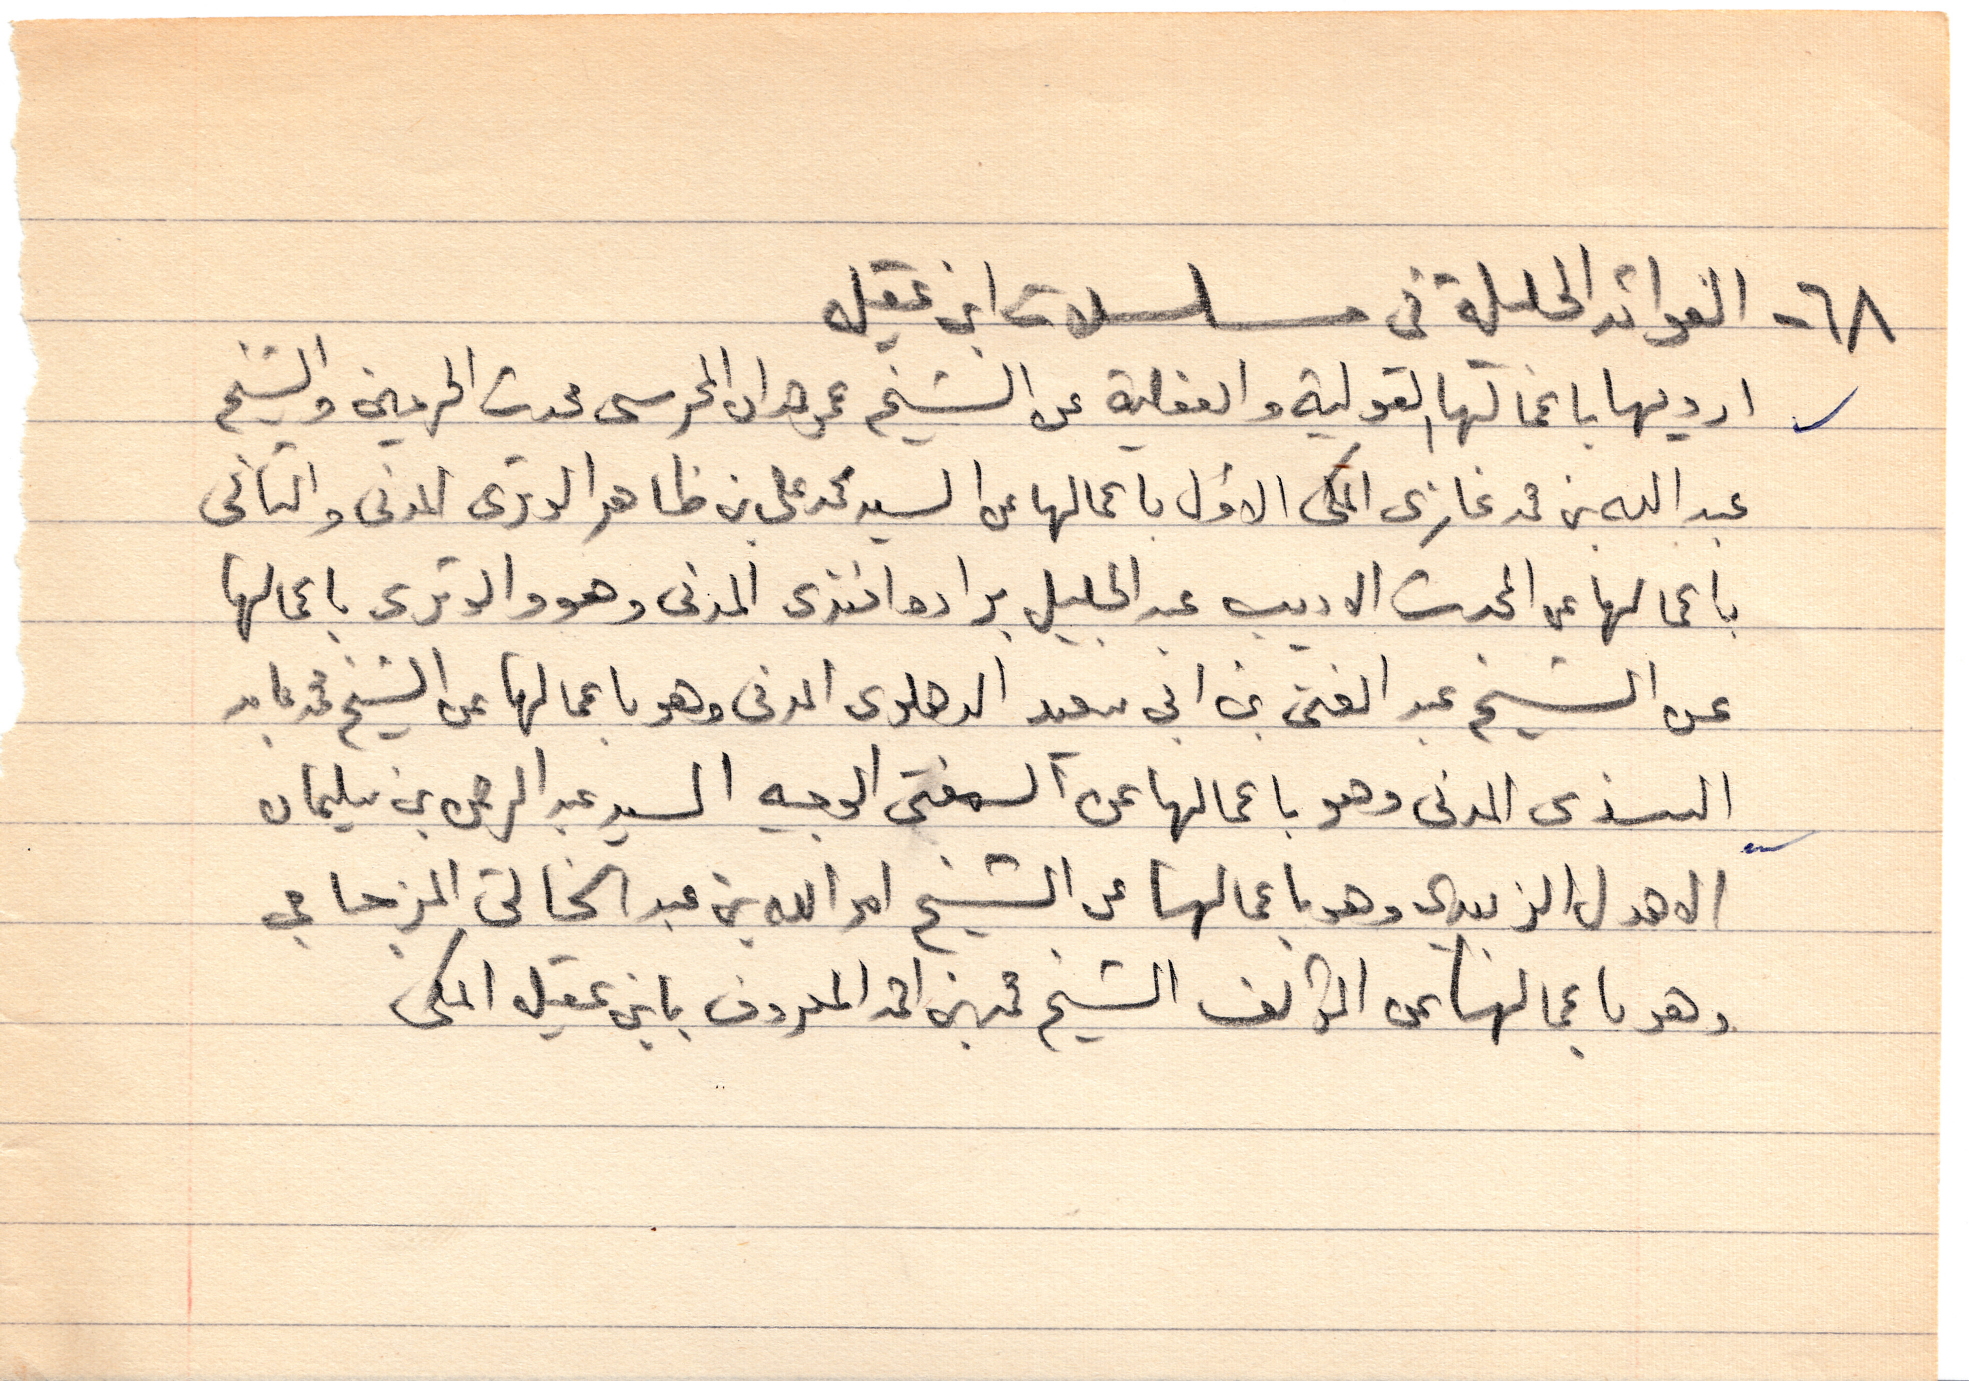 ٦٨- الفوائد الجليلة في مسلسلات ابن عقيلة
ارويها باعمالها القولية والفعلية عن الشيخ عمر حمدان المحرسى محدث الحرمين والشيخ
عبد الله بن محمد غازى المكى الاول باعمالها عن السيد محمد على بن ظاهر الوترى المدنى والثانى
باعمالها عن المحدث الاديب عبد الجليل براده افندى المدنى وهو والوترى باعمالها
عن الشيخ عبد الغنى بن ابي سعيد الدهلوى المدنى وهو باعمالها عن الشيخ محمد عابد
السندى المدنى وهو باعمالها عن المفتى الوجيه السيد عبد الرحمن بن سليمان
الاهدل الزبيدي وهو باعمالها عن الشيخ امر الله بن عبد الخالق المزجاجي
وهو باعمالها عن المؤلف الشيخ محمد بن احمد المعروف بابن عقيلة المكى